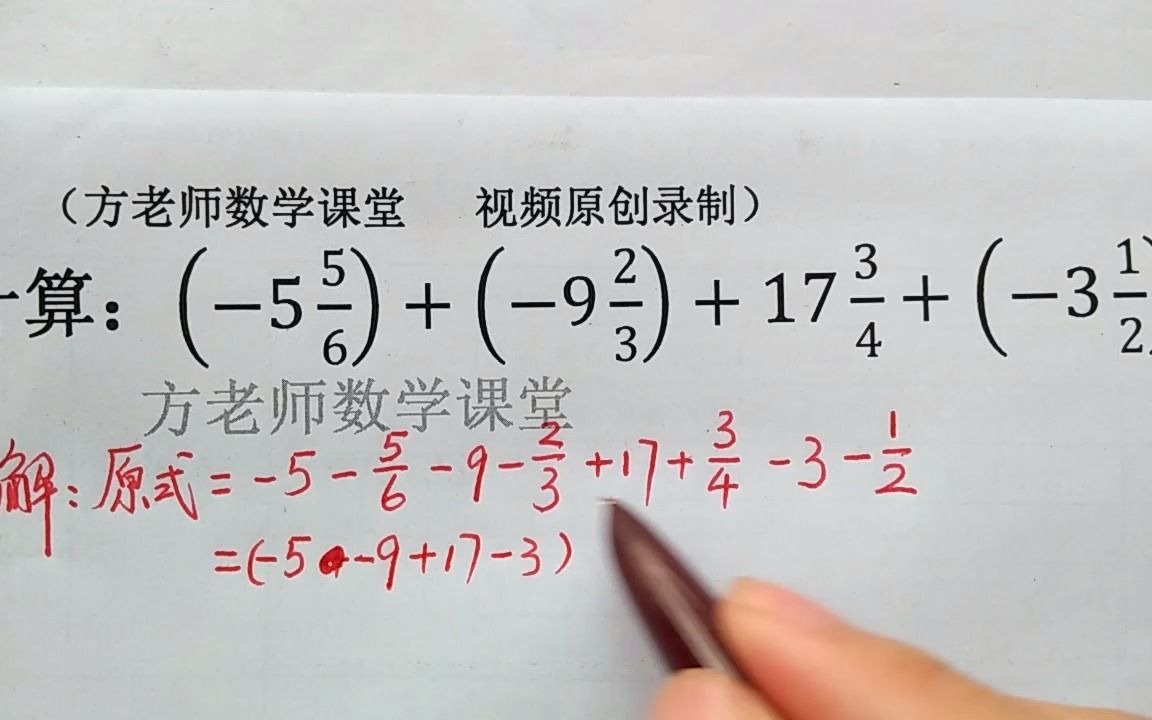 （方老师数学课堂 视频原创录制）
算：(−5 5/6)+(−9 2/3)+17 3/4+(−3 1/2)
方老师数学课堂
解：原式=-5-5/6-9-2/3+17+3/4-3-1/2
=(-5-9+17-3)